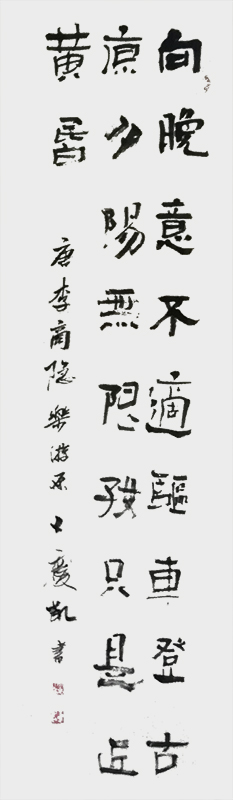 向晚意不適驅車登古
原夕陽無限好只是近
黄昏
唐李商隐樂游原 慶凱書